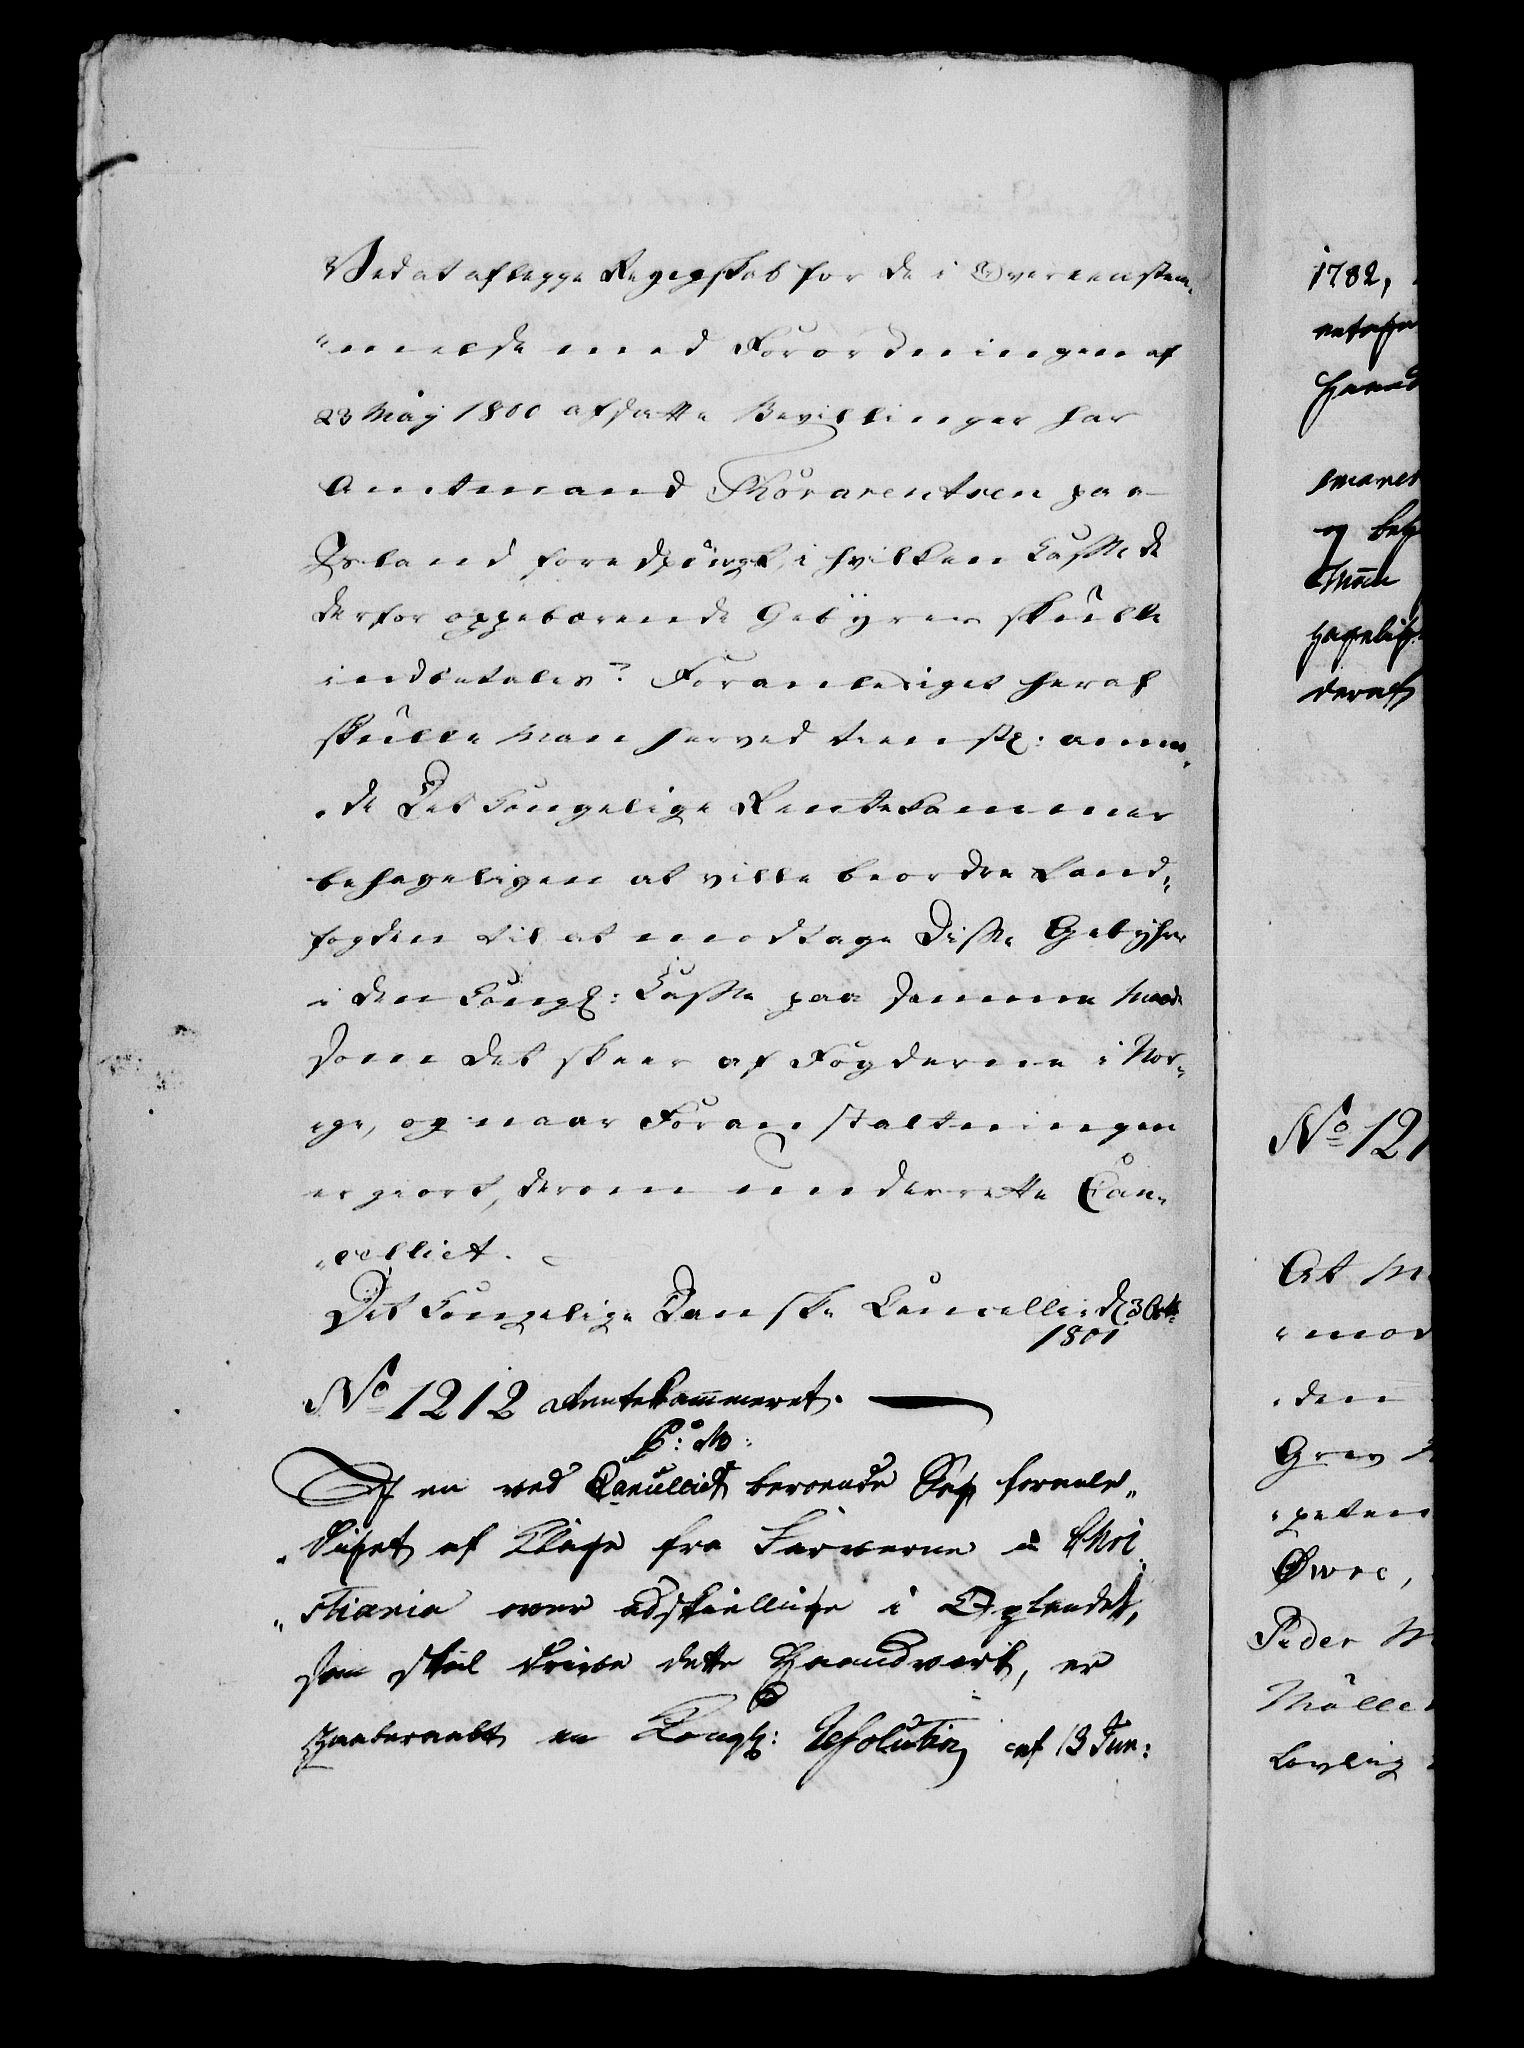 Ved at aflegge Regnskab for de i Overeenstem¬
"melse med Forordningen af
23 Maj 1800 afsatte Bevillinger har
Amtmand Thorarensen paa
Island foredspurgt, i hvilken Casse de
derfor oppebærende Gebyrer skulle
indbetales? Foranlediget heraf
skulle Man herved tienstl: anmo¬
"de Det Kongelige Rentekammer
behageligen at ville beordre Land¬
fogden til at modtage disse Gebyhrer
i den Kongl: Casse paa samme Maade
som det skeer af Fogderne i Nor¬
ege, og naar Foranstaltningen
er giort, derom underrette Can¬
"celliet.
Det Kongelige Danske Cancellie d 3 Octb
1801
No 1212 Rentekammeret.
P: M:
I en ved Cancelliet beroende Sag foranle¬
"diget af Klage fra Farverne i Chri
"stiania over adskiellige i Oplandet,
som skal drive dette Haandverk, er
paaberaabt en Kongl: Resolution af 13 Jun:
1782,
No 121
At M
"mod
"den
Grev
"peten
Øvre,
Peder M
Mølle
Lovlig